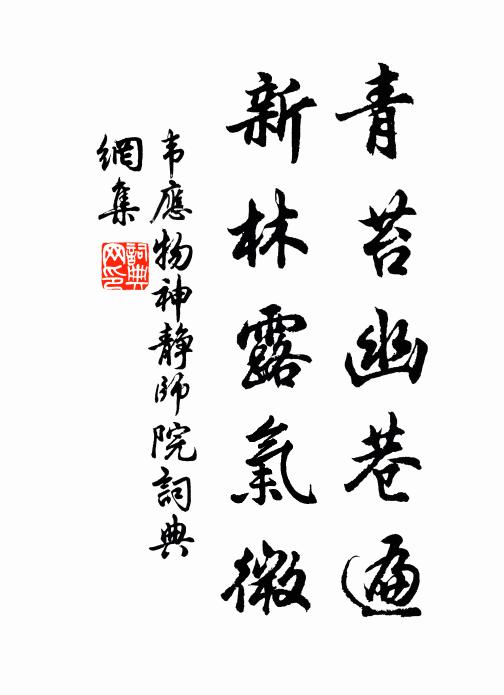 青苔幽巷遍
新林露氣微
韦應物神静師院詞典
網集
詞典
网印